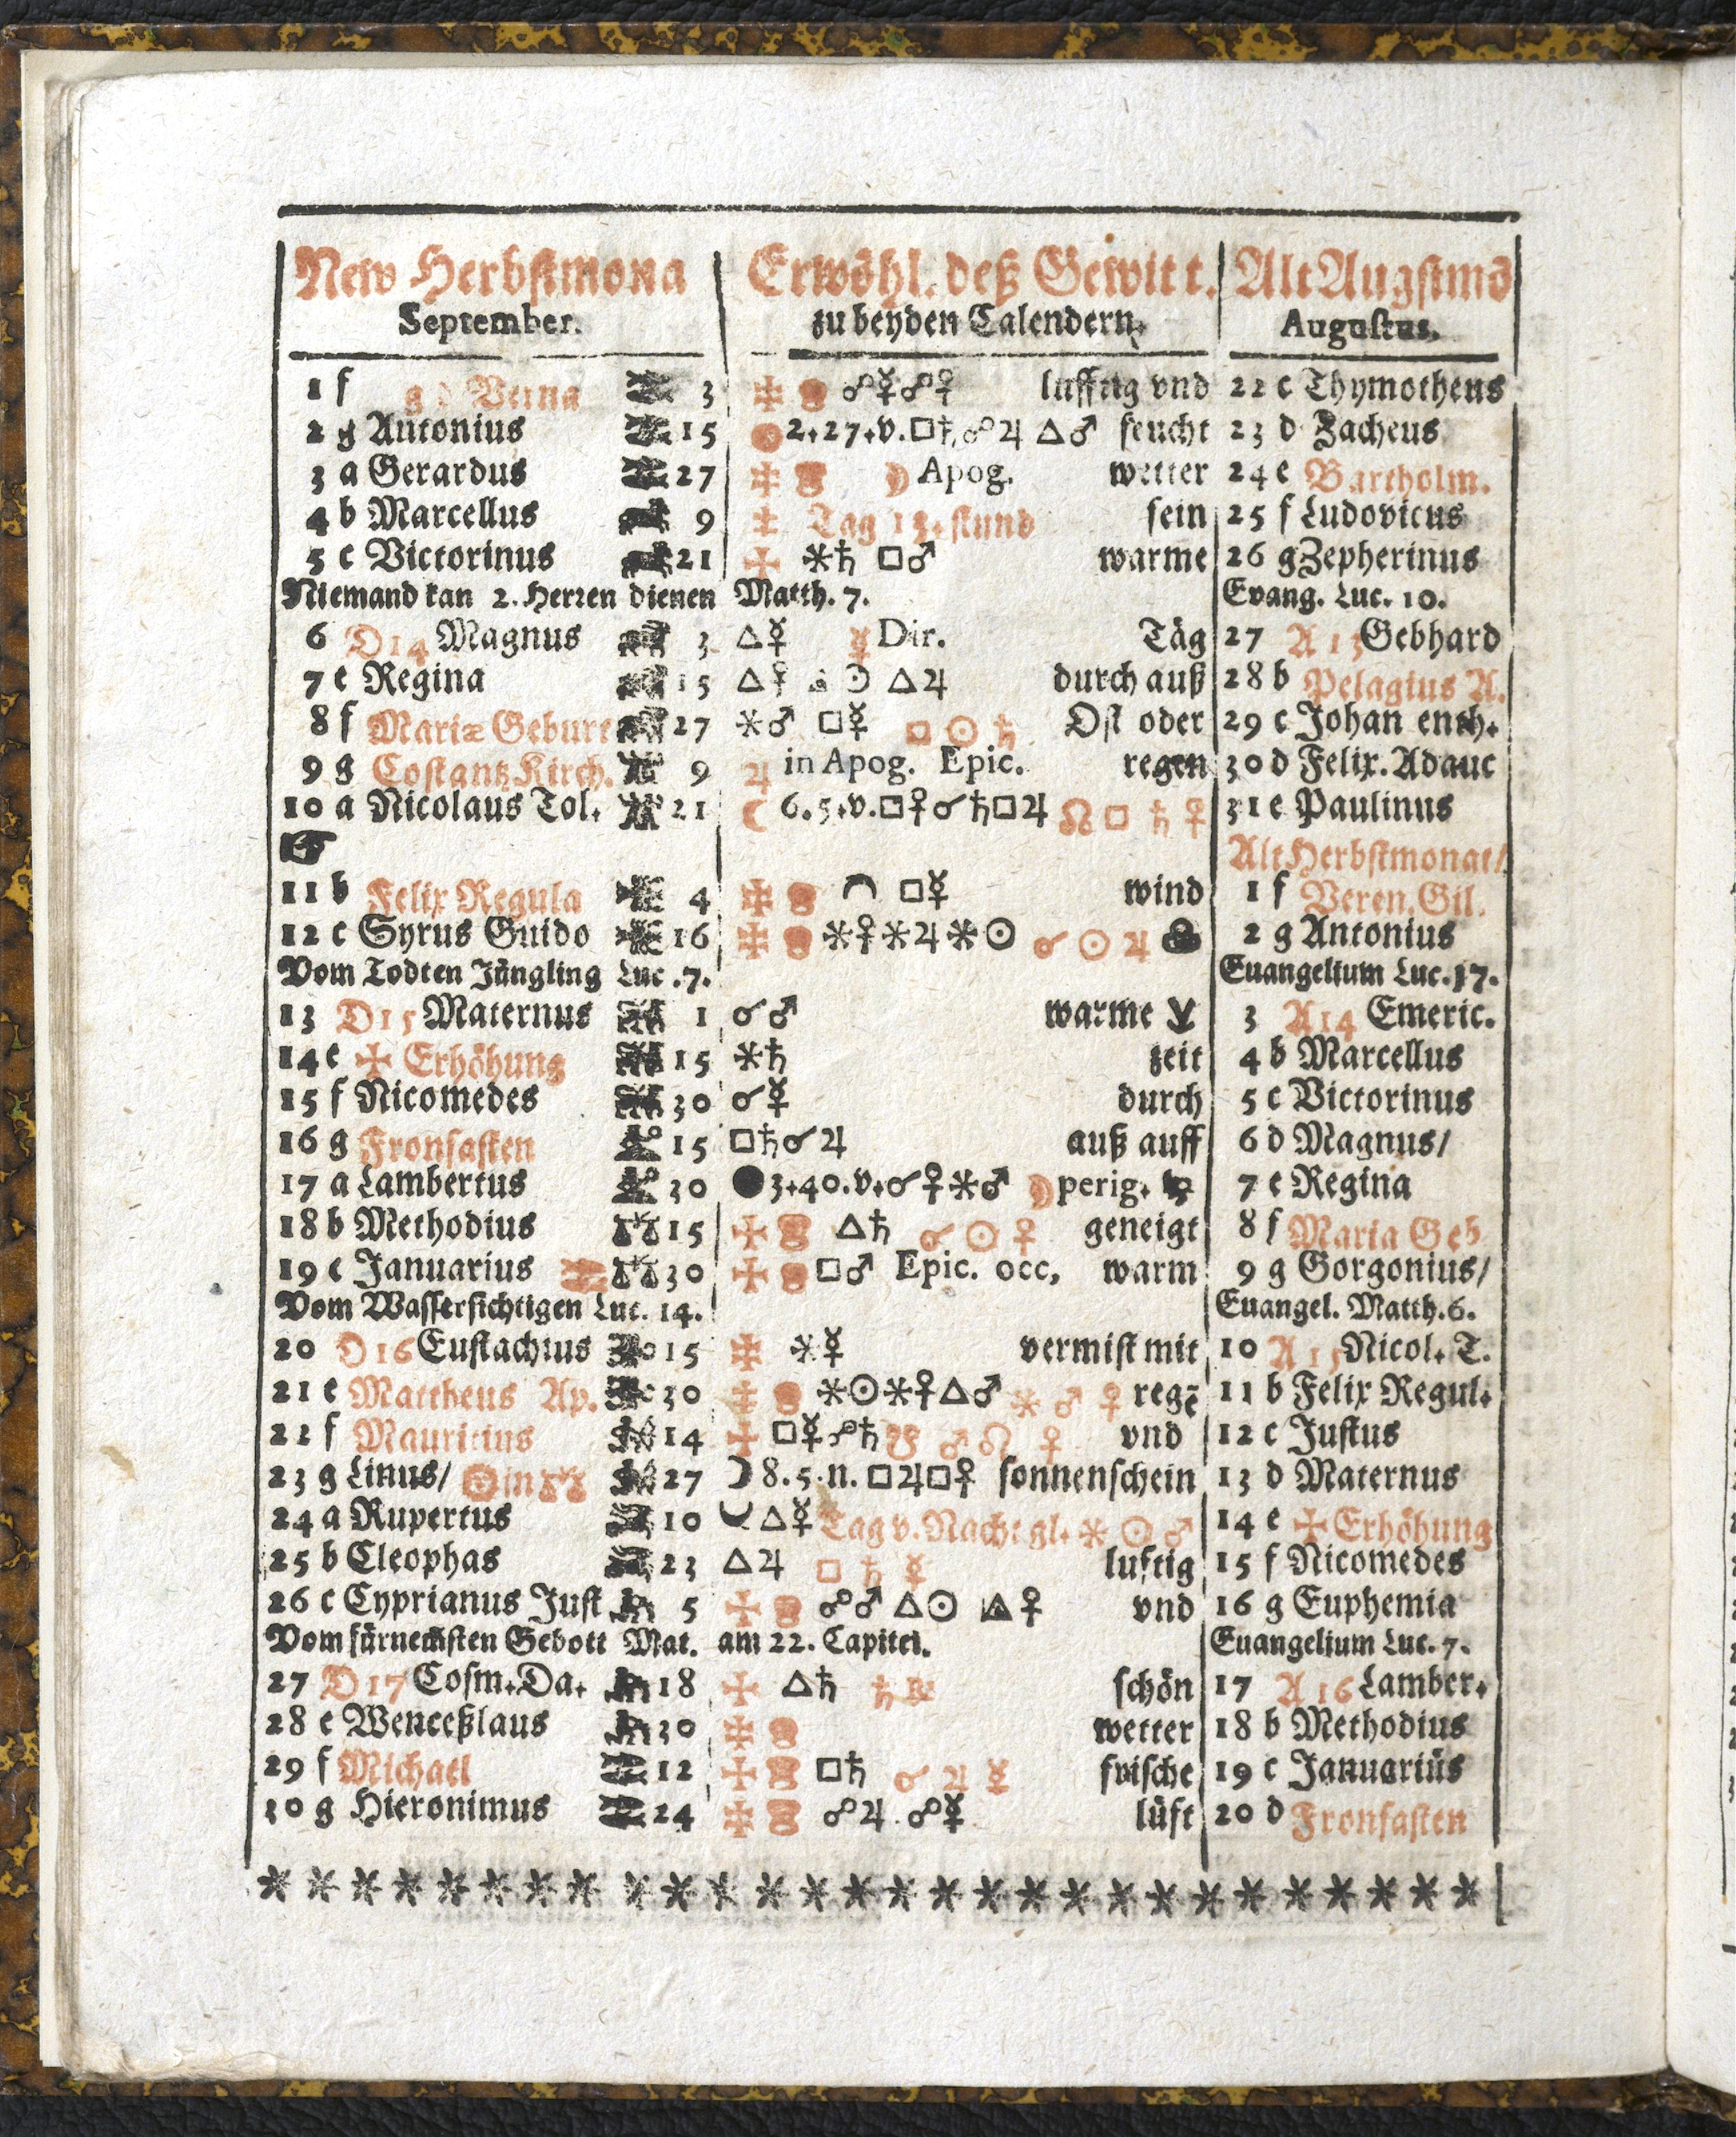 New Herbstmona Erwöhl. deß Gewitt. Alt Augstmō
September. zu beyden Calendern. Augustus.
1 f 3 ☍☿☍♀ lufftig vnd 22 c Thymotheus
2 g Antonius 15 2.27.v.□♄,☍♃ △♂ feucht 23 d Zacheus
3 a Gerardus 27 ☽ Apog. wetter 24 e Bartholm.
4 b Marcellus 9 Tag 13. stund sein 25 f Ludovicus
5 c Victorinus 21 ⚹♄ □♂ warme 26 g Zepherinus
Niemand kan 2. Herren dienen Matth. 7. Evang. Luc. 10.
6 D14 Magnus 3 △☿ ☿ Dir. Täg 27 A 13 Gebhard
7 e Regina 15 △♀ ☉ △♃ durch auß 28 b Pelagius A.
8 f Mariæ Geburt 27 ⚹♂ □☿ □ ☉ ♄ Ost oder 29 c Johan enth.
9 g Costantz Kirch. 9 ♃ in Apog. Epic. regen 30 d Felix. Adauc
10 a Nicolaus Tol. 21 ☾ 6.5.v.□♀☌♄□♃ ☊ □ ♄ ♀ 31 e Paulinus
☞ Alt Herbstmonat/
11 b Felix Regula 4 □☿ wind 1 f Veren. Gil.
12 c Syrus Guido 16 ⚹♀⚹♃⚹☉ ☌ ☉ ♃ 2 g Antonius
Vom Todten Jüngling Luc .7. Euangelium Luc. 17.
13 D15 Maternus 1 ☌♂ warme 3 A14 Emeric.
14 e ✠ Erhöhung 15 ⚹♄ zeit 4 b Marcellus
15 f Nicomedes 30 ☌☿ durch 5 c Victorinus
16 g Fronfasten 15 □♄☌♃ auß auff 6 d Magnus/
17 a Lambertus 30 ●3.40.v.☌♀⚹♂ ☽ perig. 7 e Regina
18 b Methodius 15 △♄ ☌ ☉ ♀ geneigt 8 f Maria Geb
19 c Januarius 30 □♂ Epic. occ, warm 9 g Gorgonius/
Vom Wassersichtigen Luc. 14. Euangel. Matth.6.
20 D16 Eustachius 15 ⚹☿ vermist mit 10 A 15 Nicol. T.
21 e Mattheus Ap. 30 ⚹☉⚹♀△♂ ⚹ ♂ ♀ regē 11 b Felix Regul.
22 f Mauritius 14 □☿☍♄ ☋ ♂ ☊ ♀ vnd 12 c Justus
23 g Linus/ ☉ in ♎ 27 ☽ 8.5.n. □♃□♀ sonnenschein 13 d Maternus
24 a Rupertus 10 △☿ Tag v. Nacht gl. ⚹ ☉ ♂ 14 e ✠ Erhöhung
25 b Cleophas 23 △♃ □ ♄ ☿ luftig 15 f Nicomedes
26 c Cyprianus Just 5 ☍♂ △☉ △♀ vnd 16 g Euphemia
Vom fürnemsten Gebott Mat. am 22. Capitel. Euangelium Luc. 7.
27 D17 Cosm. Da. 18 △♄ ♄ schön 17 A 16 Lamber.
28 e Wenceßlaus 30 wetter 18 b Methodius
29 f Michael 12 □♄ ☌ ♃ ☿ frische 19 c Januariüs
30 g Hieronimus 24 ☍♃ ☍☿ lüft 20 d Fronfasten